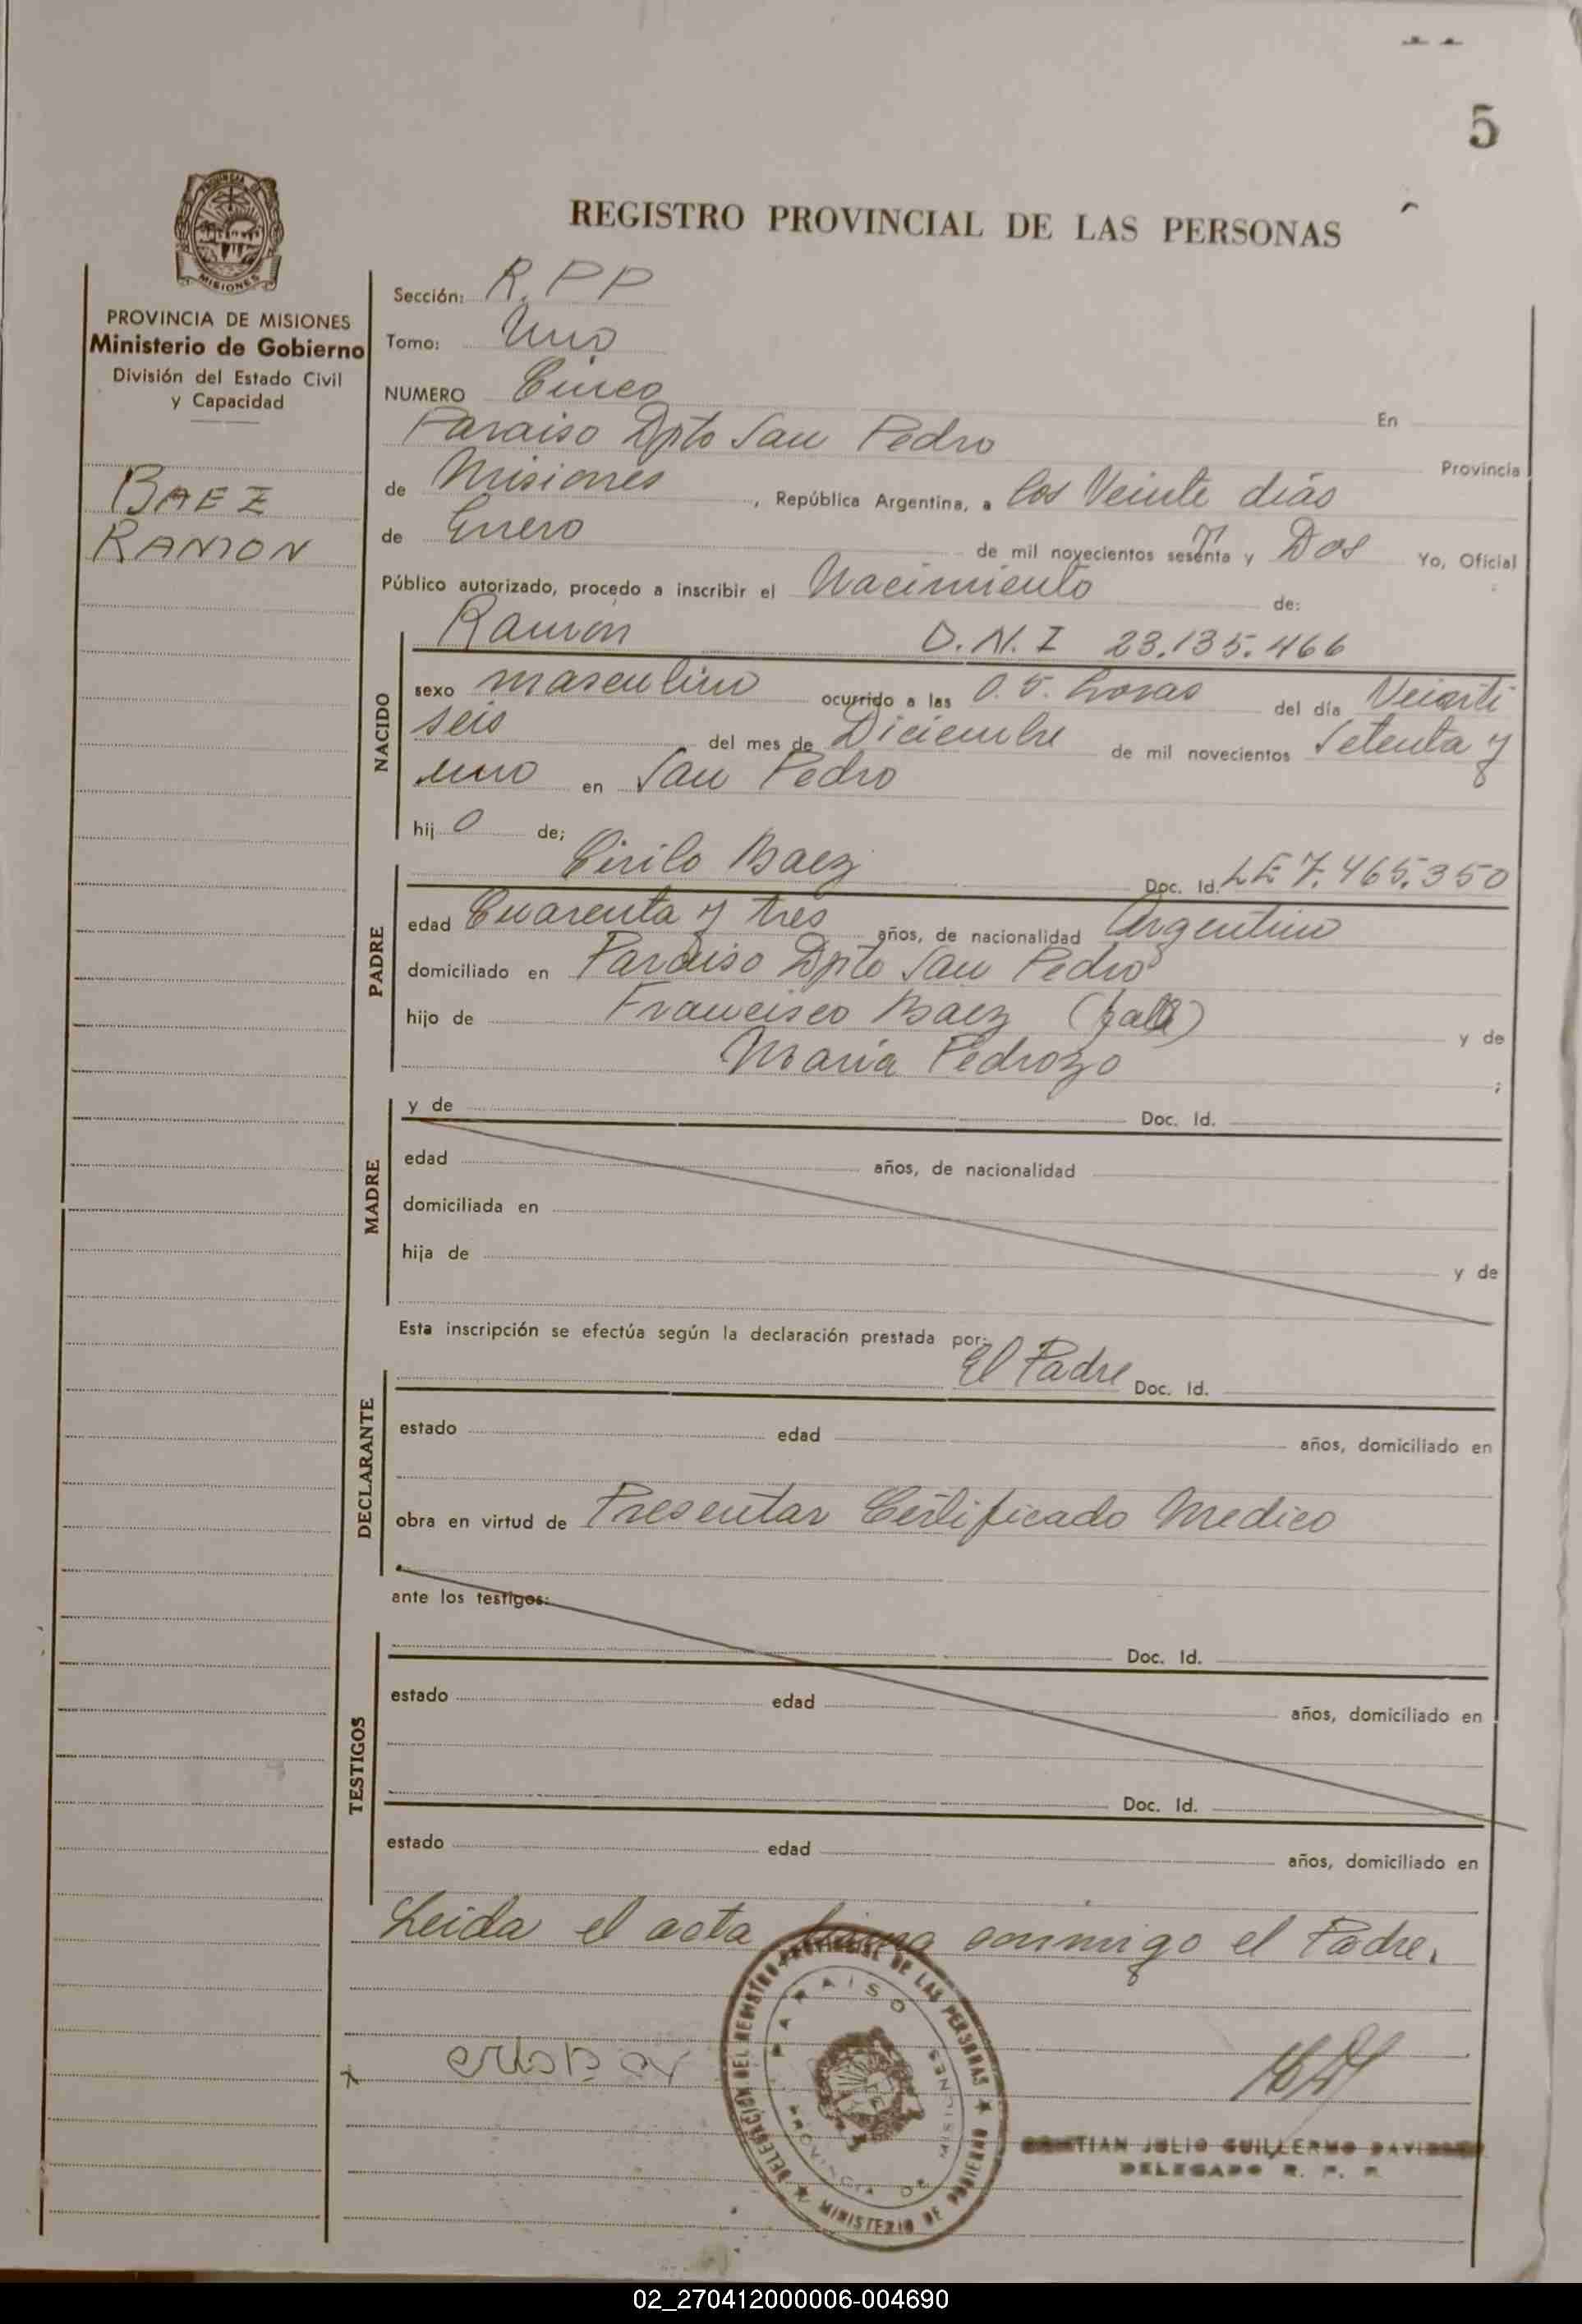 5
PROVINCIA DE
MISIONES
REGISTRO PROVINCIAL DE LAS PERSONAS
PROVINCIA DE MISIONES
Ministerio de Gobierno
División del Estado Civil
y Capacidad
BAEZ
RAMON
Sección: R.PP
Tomo: Uno
NUMERO Cinco En
Paraiso Dpto San Pedro Provincia
de Misiones , República Argentina, a los Veinte días
de Enero de mil novecientos sesenta y Dos Yo, Oficial
Público autorizado, procedo a inscribir el Nacimiento de:
NACIDO
Ramon D.N.I 23.135.466
sexo masculino ocurrido a las 0.5. horas del día Veinti
seis del mes de Diciembre de mil novecientos Setenta y
uno en San Pedro
hij o de;
PADRE
Cirilo Baez Doc. Id. LE 7.465.350
edad Cuarenta y tres años, de nacionalidad Argentino
domiciliado en Paraiso Dpto San Pedro
hijo de Francisco Baez y de
Maria Pedrozo ;
MADRE
y de Doc. Id.
edad años, de nacionalidad
domiciliada en
hija de y de
Esta inscripción se efectúa según la declaración prestada por:
DECLARANTE
El Padre Doc. Id.
estado edad años, domiciliado en
obra en virtud de Presentar Certificado Medico
ante los testigos:
TESTIGOS
Doc. Id.
estado edad años, domiciliado en
Doc. Id.
estado edad años, domiciliado en
Leida el acta firma conmigo el Padre.
DELEGACION DEL REGISTRO PROVINCIAL DE LAS PERSONAS ★ MINISTERIO DE GOBIERNO ★
PARAISO
PROVINCIA DE MISIONES
JULIO GUILLERMO
DELEGADO R. P. P.
02_270412000006-004690